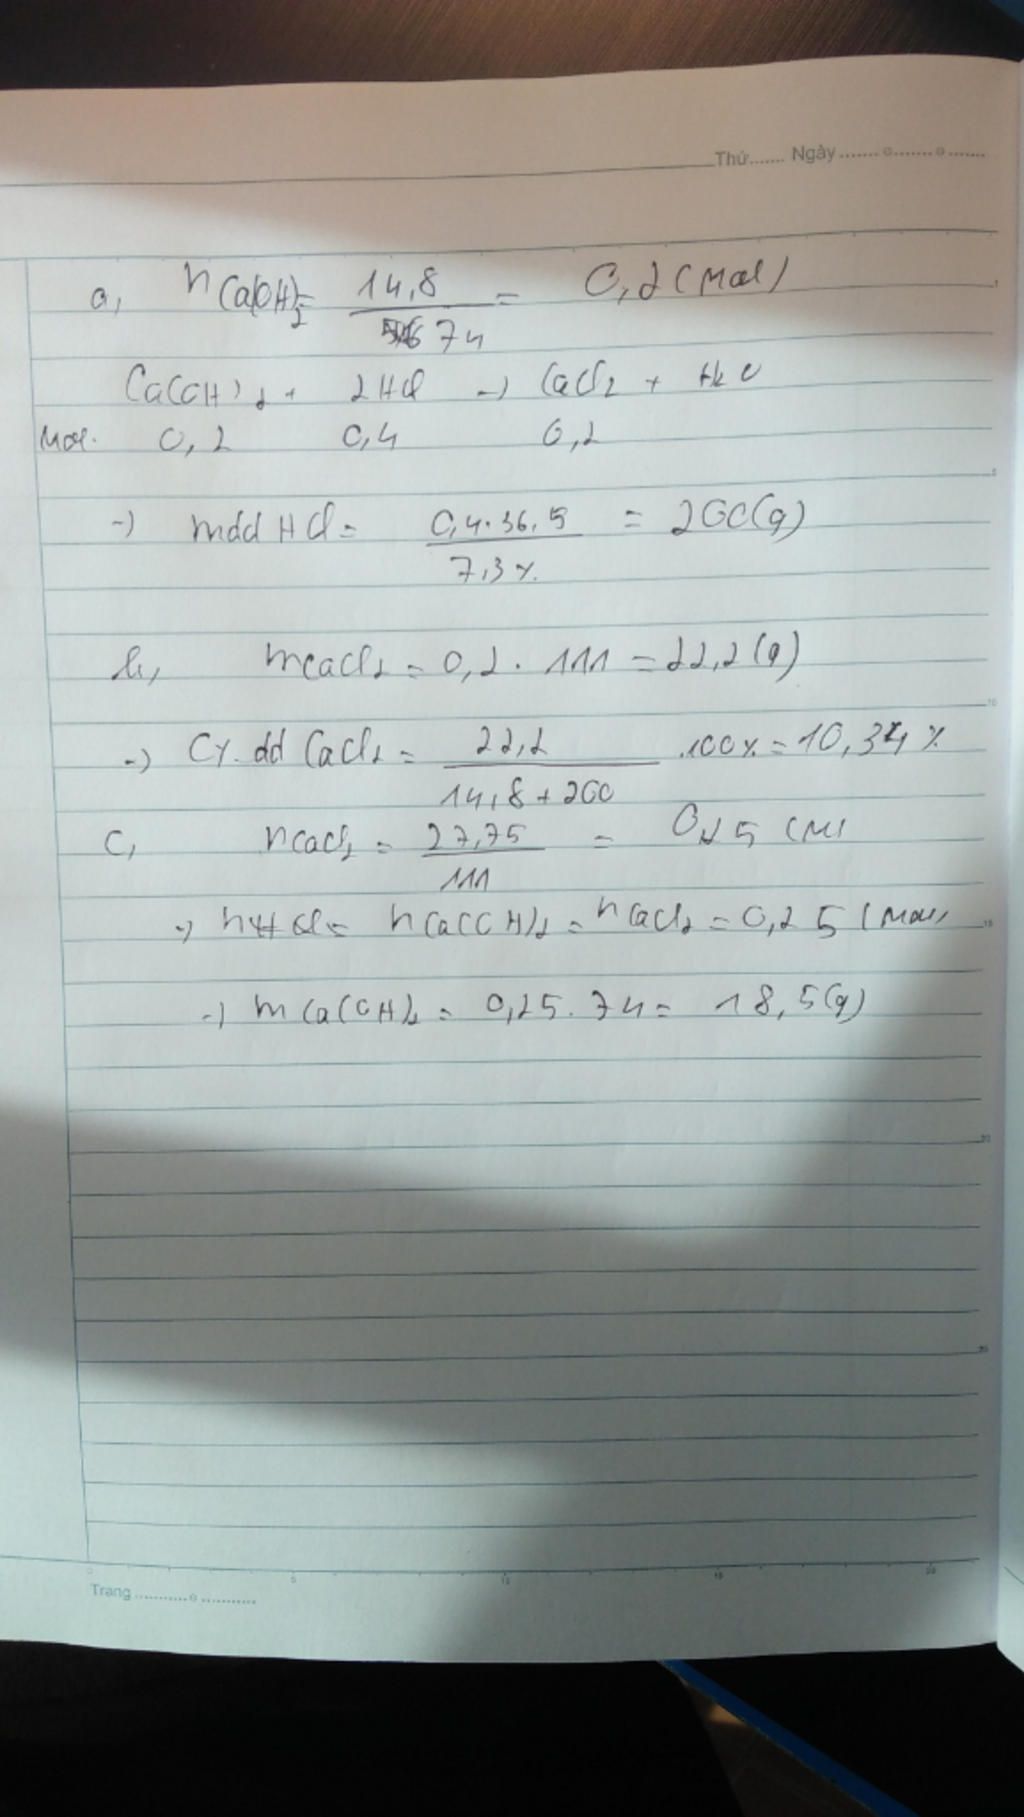 Thứ....... Ngày.......o.......o.......
a, nCa(OH)2 = 14,8 / 74 = 0,2 (mol)
Ca(OH)2 + 2HCl -> CaCl2 + H2O
Mol. 0,2 0,4 0,2
-> mdd HCl = 0,4.36,5 / 7,3% = 200(g)
b, mCaCl2 = 0,2 . 111 = 22,2 (g)
-> C%dd CaCl2 = 22,2 / 14,8 + 200 .100% = 10,34%
c, nCaCl2 = 27,75 / 111 = 0,25 (M)
-> = nCa(OH)2 = nCaCl2 = 0,25 (mol)
-> mCa(OH)2 = 0,25.74 = 18,5(g)
Trang...........o...........